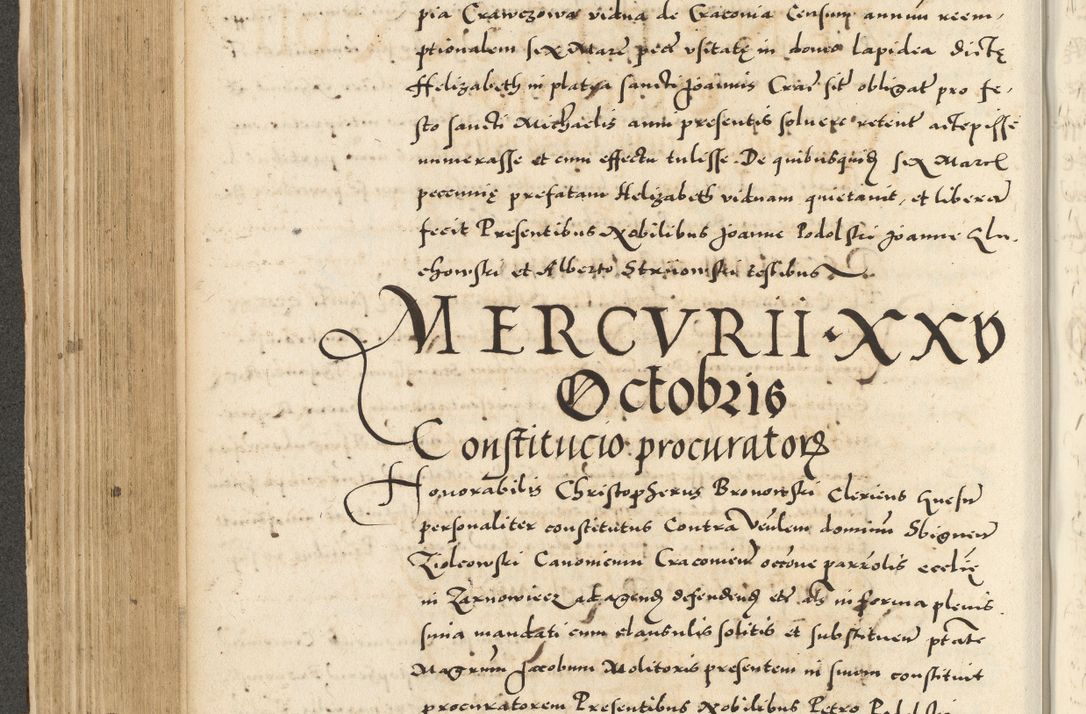 pia Crawczowa vidua de Cracovia Censum annuu reem-
ptionalem sex Marc̄ pecc̄ vsitatę in domo lapidea dictę
Helizabeth in platea sancti Joannis Crac̄ sit̄ obligat̄ pro fe-
sto sancti Michaelis anni presentis soluere retent̄ accepisse
numerasse et cum effectu tulisse. De quibusquid sex Marc̄
pecunnię prefatam Helizabeth viduam quietauit, et liberā
fecit Presentibus Nobilibus Joanne Podolski Joanne Glu-
chowski et Alberto Strzionski testibus
MERCVRII · XXV
Octobris
Constitucio procuratorꝝ
Honorabilis Christopherus Bronowski Clericus Gnesn̄
personaliter constitutus Contra Ven̄lem dominum Sbigneū
Ziolcowski Canonicum Cracouien̄ occōne parrōlis eccl̄ię
in Zarnowiecz ad agend̄ defendend̄ etc̄ als̄ in forma plenis
sima mandati cum clausulis solitis et substituen̄ ptāte
Magrum Jacobum Molitoris presentem in suum constituit
procuratorem Presentibus Nobilibus Petro Podolski